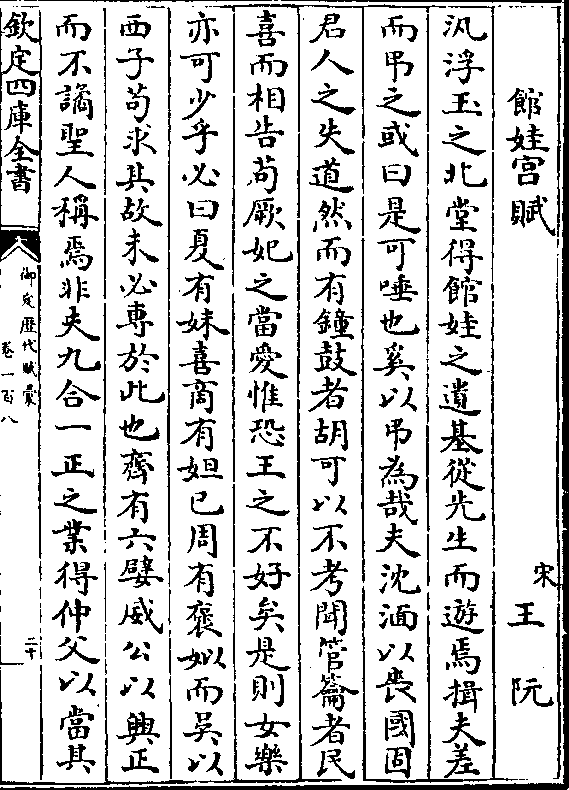 館娃宮賦
宋王阮
汎浮玉之北堂得館娃之遺基從先生而遊焉揖夫差
而弔之或曰是可唾也奚以弔為哉夫沈湎以喪國固
君人之失道然而有鐘鼓者胡可以不考聞管籥者民
喜而相告茍厥妃之當愛惟恐王之不好矣是則女樂
亦可少乎必曰夏有妹喜商有妲已周有褒姒而吳以
西子茍求其故未必專於此也齊有六嬖威公以興正
而不譎聖人稱焉非夫九合一正之業得仲父以當其
欽定四庫全書
御定歷代賦彙
卷一百八
二十